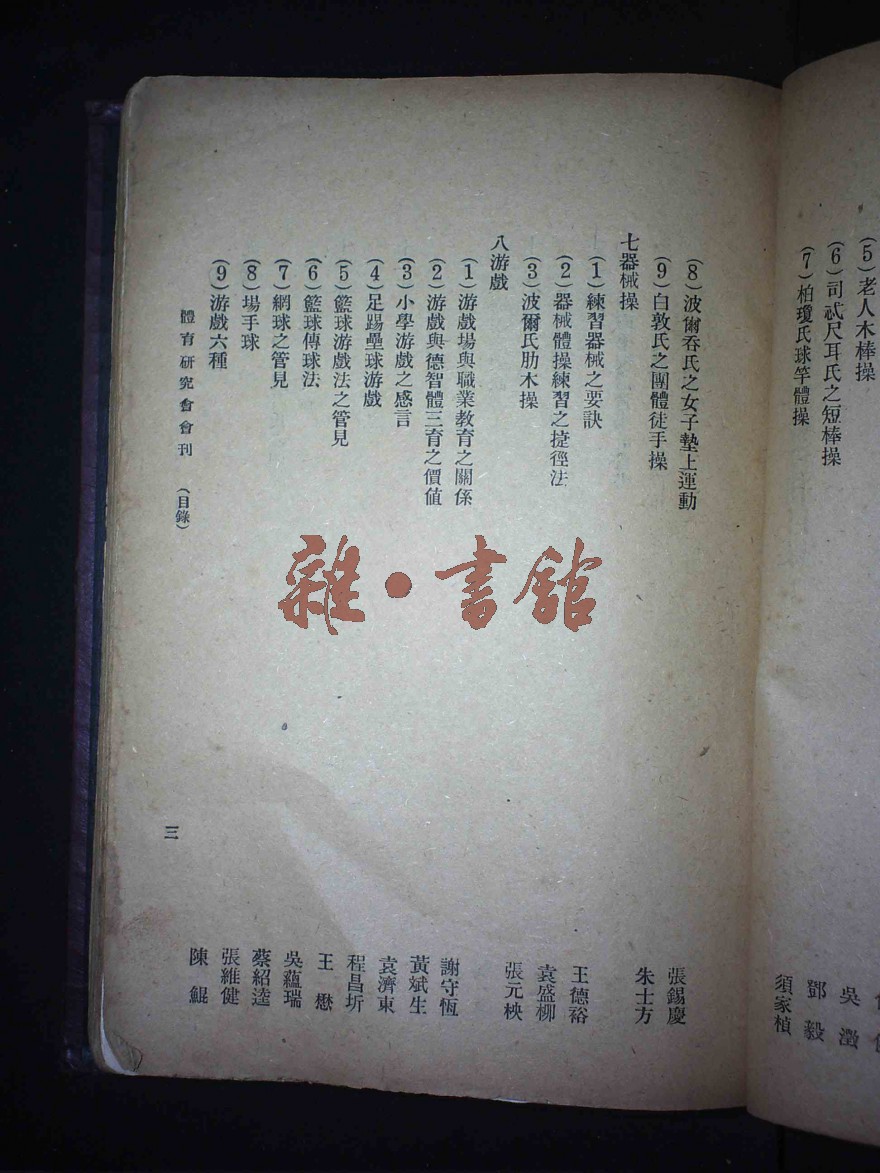 (5)老人木棒操
(6)司忒尺耳氏之短棒操 吳瀓
(7)柏瓊氏球竿體操 鄧毅
須家楨
(8)波爾吞氏之女子墊上運動 張錫慶
(9)白敦氏之團體徒手操 朱士方
七器械操
(1)練習器械之要訣 王德裕
(2)器械體操練習之捷徑法 袁盛柳
(3)波爾氏肋木操 張元柍
八游戲
(1)游戲場與職業教育之關係 謝守恆
(2)游戲與德智體三育之價値 黃斌生
(3)小學游戲之感言 袁濟東
(4)足踢壘球游戲 程昌圻
(5)籃球游戲法之管見 王懋
(6)籃球傳球法 吳蘊瑞
(7)網球之管見 蔡紹逵
(8)場手球 張維健
(9)游戲六種 陳鯤
體育硏究會會刊 (目錄) 三
雜·書館